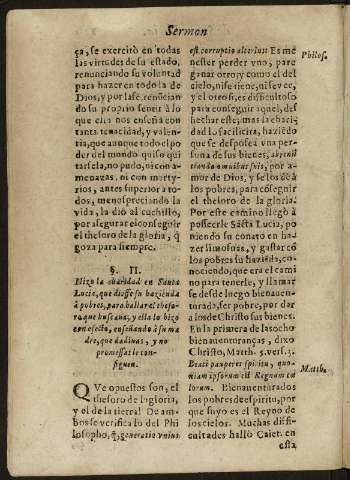 Sermon
ça, se exercitò en todas
las virtudes de su estado,
renunciando su voluntad
para hazer en todo la de
Dios, y por la fe, renuncian
do su proprio sentir à lo
que ella nos enseña con
tanta tenacidad, y valen-
tia, que aunque todo el po
der del mundo quiso qui
tarsela, no pudo, ni con a-
menazas, ni con marty-
rios, antes superior a to-
dos, menospreciando la
vida, la diò al cuchillo,
por assegurar el conseguir
el thesoro de la gloria, q̃
goza para siempre.
§. II.
Hizo la charidad en Santa
Lucia, que diesse su hazienda
à pobres, para hallar el theso-
ro que buscaua, y ella lo hizo
con efecto, enseñando à su ma
dre, que dadiuas, y no
promessas le con-
siguen.
QVe opuestos son, el
thesoro de la gloria,
y el de la tierra! De am-
bos se verifica lo del Phi
losopho, q̃, generatio vnius
est corruptio alterius: Es me
nester perder vno, para
ganar otro; y como el del
cielo, ni se tiene, ni se ve,
y el otro si, es dificultoso
para conseguir aquel, des
hechar este; mas la charid-
dad lo facilita, haziẽdo
que se desposea vna per-
sona de sus bienes,
por a-
mor de Dios, y se los dè à
los pobres, para cõseguir
el thesoro de la gloria.
Por este camino llegò à
posseerle Sãta Lucia, po
niendo su conato en ha-
zer limosnas, y gastar cõ
los pobres su haziẽda, co-
nociendo, que era el cami
no para tenerle, y llamar
se desde luego bienauen-
turada, ser pobre, por dar
à los de Christo sus bienes.
En la primera de las ocho
bienauenturanças, dixo
Christo, Matth. 5. vers. 3.
Beati pauperes spiritu, quo-
niam ipsorum est Regnum cæ
lorum. Bienauenturados
los pobres de espiritu, por
que suyo es el Reyno de
los cielos. Muchas difi-
cultades hallò Caiet. en
esta
Philos.
Matth.